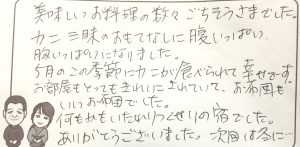 美味しいお料理の数々ごちそうさまでした。
カニ三昧のおもてなしに腹いっぱい
胸いっぱいになりました。
5月のこの季節にカニが食べられて幸せです。
お部屋もとってもきれいにされていて、お布団も
いいお布団でした。
何もかもいたれりつくせりの宿でした。
ありがとうございました。次回は冬に…